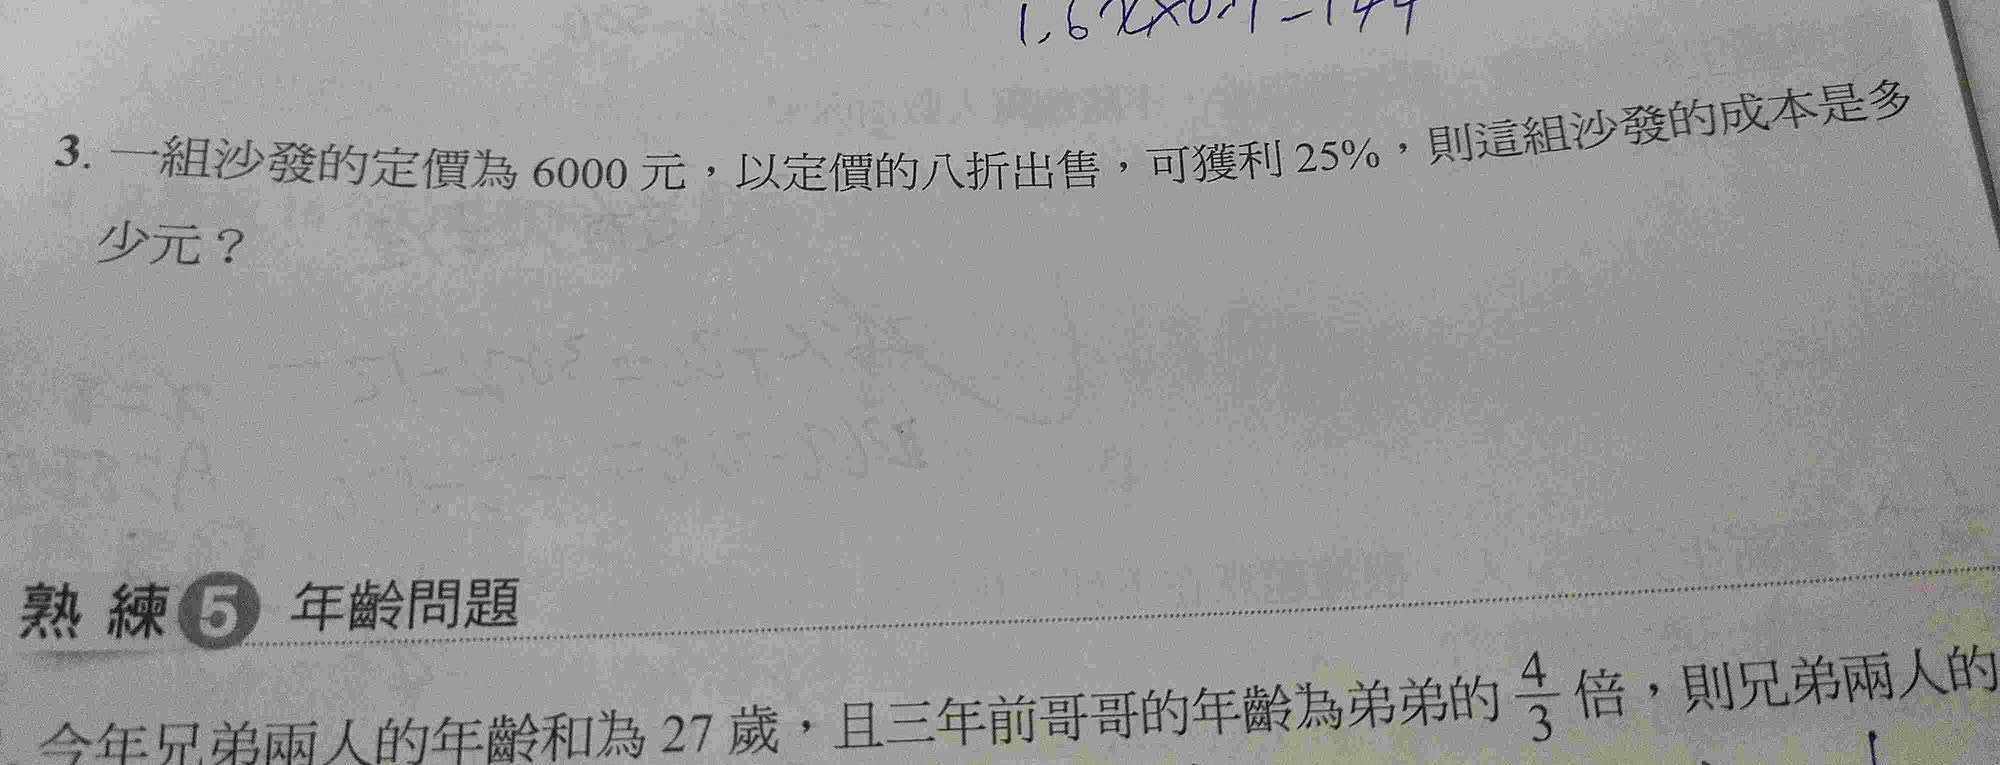 3. 一組沙發的定價為 6000 元，以定價的八折出售，可獲利 25%，則這組沙發的成本是多
少元？
熟練5 年齡問題
今年兄弟兩人的年齡和為 27 歲，且三年前哥哥的年齡為弟弟的 4/3 倍，則兄弟兩人的